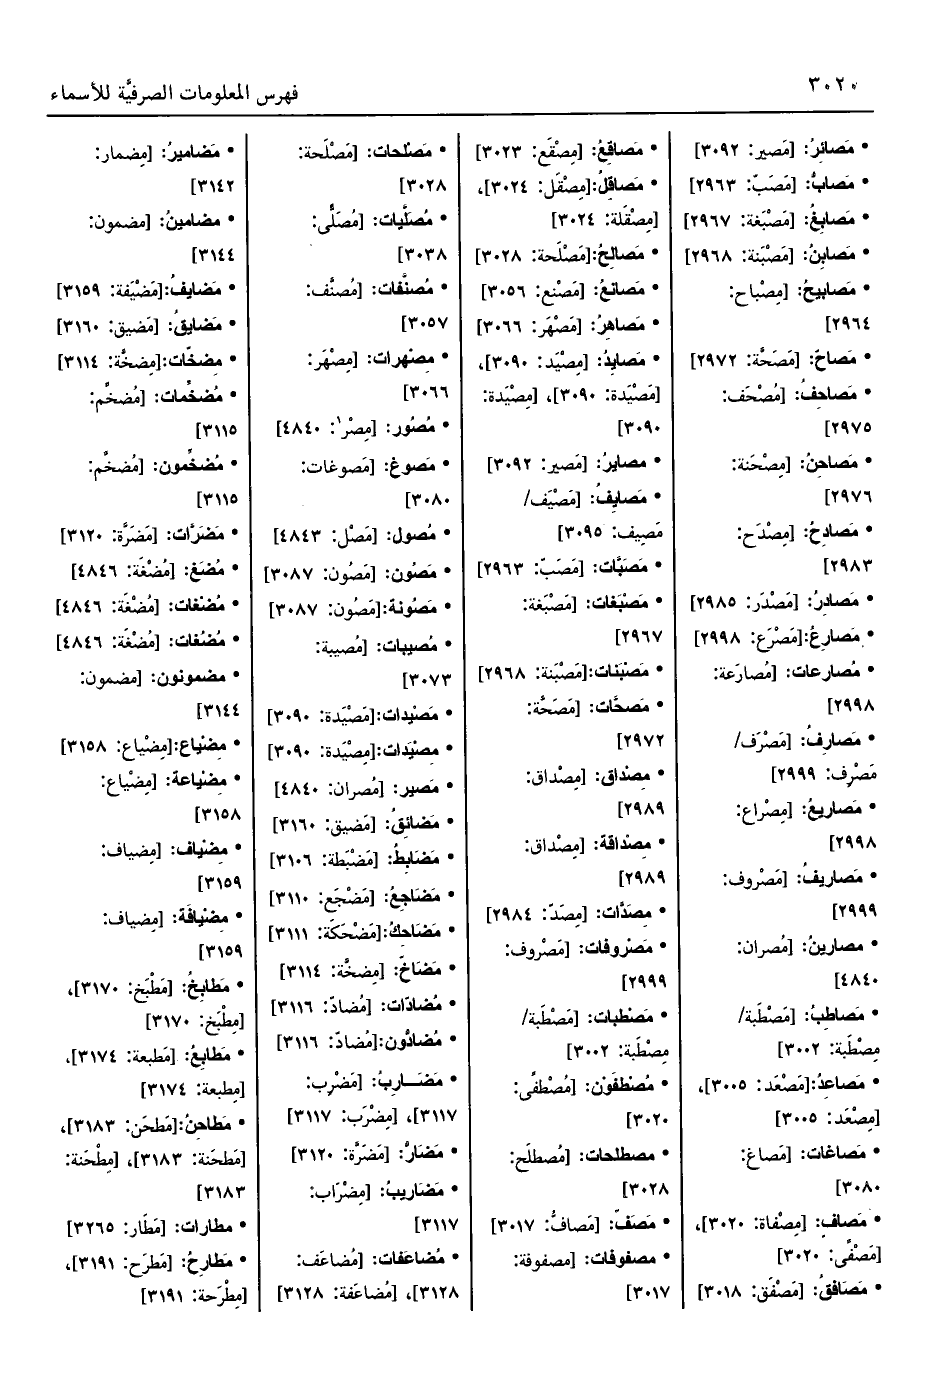 ٣٠٢٠
فهرس المعلومات الصرفيَّة للأسماء
• مَصائرُ: [مَصير: ٣٠٩٢]
• مَصابُّ: [مَصَبّ: ٢٩٦٣]
• مَصابغُ: [مَصْبَغة: ٢٩٦٧]
• مَصابنُ: [مَصْبَنة: ٢٩٦٨]
• مَصابيحُ: [مِصْباح:
٢٩٦٤]
• مَصاحّ: [مَصَحَّة: ٢٩٧٢]
• مَصاحفُ: [مُصْحَف:
٢٩٧٥]
• مَصاحنُ: [مِصْحَنة:
٢٩٧٦]
• مَصادحُ: [مِصْدَح:
٢٩٨٣]
• مَصادرُ: [مَصْدَر: ٢٩٨٥]
• مَصارعُ:[مَصْرَع: ٢٩٩٨]
• مُصارعات: [مُصارَعة:
٢٩٩٨]
• مَصارفُ: [مَصْرَف/
مَصْرِف: ٢٩٩٩]
• مَصاريعُ: [مِصْراع:
٢٩٩٨]
• مَصاريفُ: [مَصْروف:
٢٩٩٩]
• مصارينُ: [مُصران:
٤٨٤٠]
• مَصاطبُ: [مَصْطَبة/
مِصْطَبة: ٣٠٠٢]
• مَصاعدُ:[مَصْعَد: ٣٠٠٥]،
[مِصْعَد: ٣٠٠٥]
• مَصاغات: [مَصاغ:
٣٠٨٠]
• مَصافٍ: [مِصْفاة: ٣٠٢٠]،
[مَصْفًى: ٣٠٢٠]
• مَصَافقُ: [مَصْفَق: ٣٠١٨]
• مَصاقعُ: [مِصْقَع: ٣٠٢٣]
• مَصاقلُ:[مِصْقَل: ٣٠٢٤]،
[مِصْقَلة: ٣٠٢٤]
• مَصالحُ:[مَصْلَحة: ٣٠٢٨]
• مَصانعُ: [مَصْنع: ٣٠٥٦]
• مَصاهرُ: [مَصْهَر: ٣٠٦٦]
• مَصايدُ: [مِصْيَد: ٣٠٩٠]،
[مَصْيَدة: ٣٠٩٠]، [مِصْيَدة:
٣٠٩٠]
• مَصايرُ: [مَصير: ٣٠٩٢]
• مَصايفُ: [مَصْيَف/
مَصِيف: ٣٠٩٥]
• مَصَبَّات: [مَصَبّ: ٢٩٦٣]
• مَصْبَغات: [مَصْبَغة:
٢٩٦٧]
• مَصْبَنات:[مَصْبَنة: ٢٩٦٨]
• مَصحَّات: [مَصَحَّة:
٢٩٧٢]
• مِصْداق: [مِصْداق:
٢٩٨٩]
• مِصْداقة: [مِصْداق:
٢٩٨٩]
• مِصَدَّات: [مِصَدّ: ٢٩٨٤]
• مَصْروفات: [مَصْروف:
٢٩٩٩]
• مَصْطبات: [مَصْطَبة/
مِصْطَبة: ٣٠٠٢]
• مُصْطفَوْن: [مُصْطفًى:
٣٠٢٠]
• مصطلحات: [مُصطلَح:
٣٠٢٨]
• مَصَفّ: [مَصافُّ: ٣٠١٧]
• مصفوفات: [مصفوفة:
٣٠١٧]
• مَصْلحات: [مَصْلَحة:
٣٠٢٨]
• مُصلَّيات: [مُصَلًّى:
٣٠٣٨]
• مُصنَّفات: [مُصنَّف:
٣٠٥٧]
• مِصْهرات: [مِصْهَر:
٣٠٦٦]
• مُصُور: [مِصْر١: ٤٨٤٠]
• مَصوغ: [مَصوغات:
٣٠٨٠]
• مُصول: [مَصْل: ٤٨٤٣]
• مَصُون: [مَصُون: ٣٠٨٧]
• مَصُونة:[مَصُون: ٣٠٨٧]
• مُصيبات: [مُصيبة:
٣٠٧٣]
• مَصْيَدات:[مَصْيَدة: ٣٠٩٠]
• مِصْيَدات: [مِصْيَدة: ٣٠٩٠]
• مَصير: [مُصران: ٤٨٤٠]
• مَضائقُ: [مَضيق: ٣١٦٠]
• مَضَابِطُ: [مَضْبَطة: ٣١٠٦]
• مَضاجعُ: [مَضْجَع: ٣١١٠]
• مَضَاحكُ:[مَضْحَكَة: ٣١١١]
• مَضَاخّ: [مِضخَّة: ٣١١٤]
• مُضادّات: [مُضادّ: ٣١١٦]
• مُضادُّون:[مُضادّ: ٣١١٦]
• مَضَاربُ: [مَضْرِب:
٣١١٧]، [مِضْرَب: ٣١١٧]
• مَضَارُّ: [مَضَرَّة: ٣١٢٠]
• مَضَاريبُ: [مِضْرَاب:
٣١١٧]
• مُضاعَفات: [مُضاعَف:
٣١٢٨]، [مُضاعَفة: ٣١٢٨]
• مَضاميرُ: [مِضمار:
٣١٤٢]
• مضامينُ: [مضمون:
٣١٤٤]
• مَضايفُ:[مَضْيَفة: ٣١٥٩]
• مَضايقُ: [مَضيق: ٣١٦٠]
• مِضخَّات:[مِضخَّة: ٣١١٤]
• مُضخِّمات: [مُضخِّم:
٣١١٥]
• مُضخِّمون: [مُضخِّم:
٣١١٥]
• مَضَرَّات: [مَضَرَّة: ٣١٢٠]
• مُضَغ: [مُضْغَة: ٤٨٤٦]
• مُضْغات: [مُضْغَة: ٤٨٤٦]
• مُضُغات: [مُضْغَة: ٤٨٤٦]
• مضمونون: [مضمون:
٣١٤٤]
• مِضْياع:[مِضْياع: ٣١٥٨]
• مِضْياعة: [مِضْياع:
٣١٥٨]
• مِضْياف: [مِضياف:
٣١٥٩]
• مِضْيافَة: [مِضياف:
٣١٥٩]
• مَطابخُ: [مَطْبَخ: ٣١٧٠]،
[مِطْبَخ: ٣١٧٠]
• مَطابعُ: [مَطبعة: ٣١٧٤]،
[مِطبعة: ٣١٧٤]
• مَطاحنُ:[مَطحَن: ٣١٨٣]،
[مَطحَنة: ٣١٨٣]، [مِطْحَنة:
٣١٨٣]
• مطارات: [مَطَار: ٣٢٦٥]
• مَطارحُ: [مَطرَح: ٣١٩١]،
[مِطْرَحة: ٣١٩١]